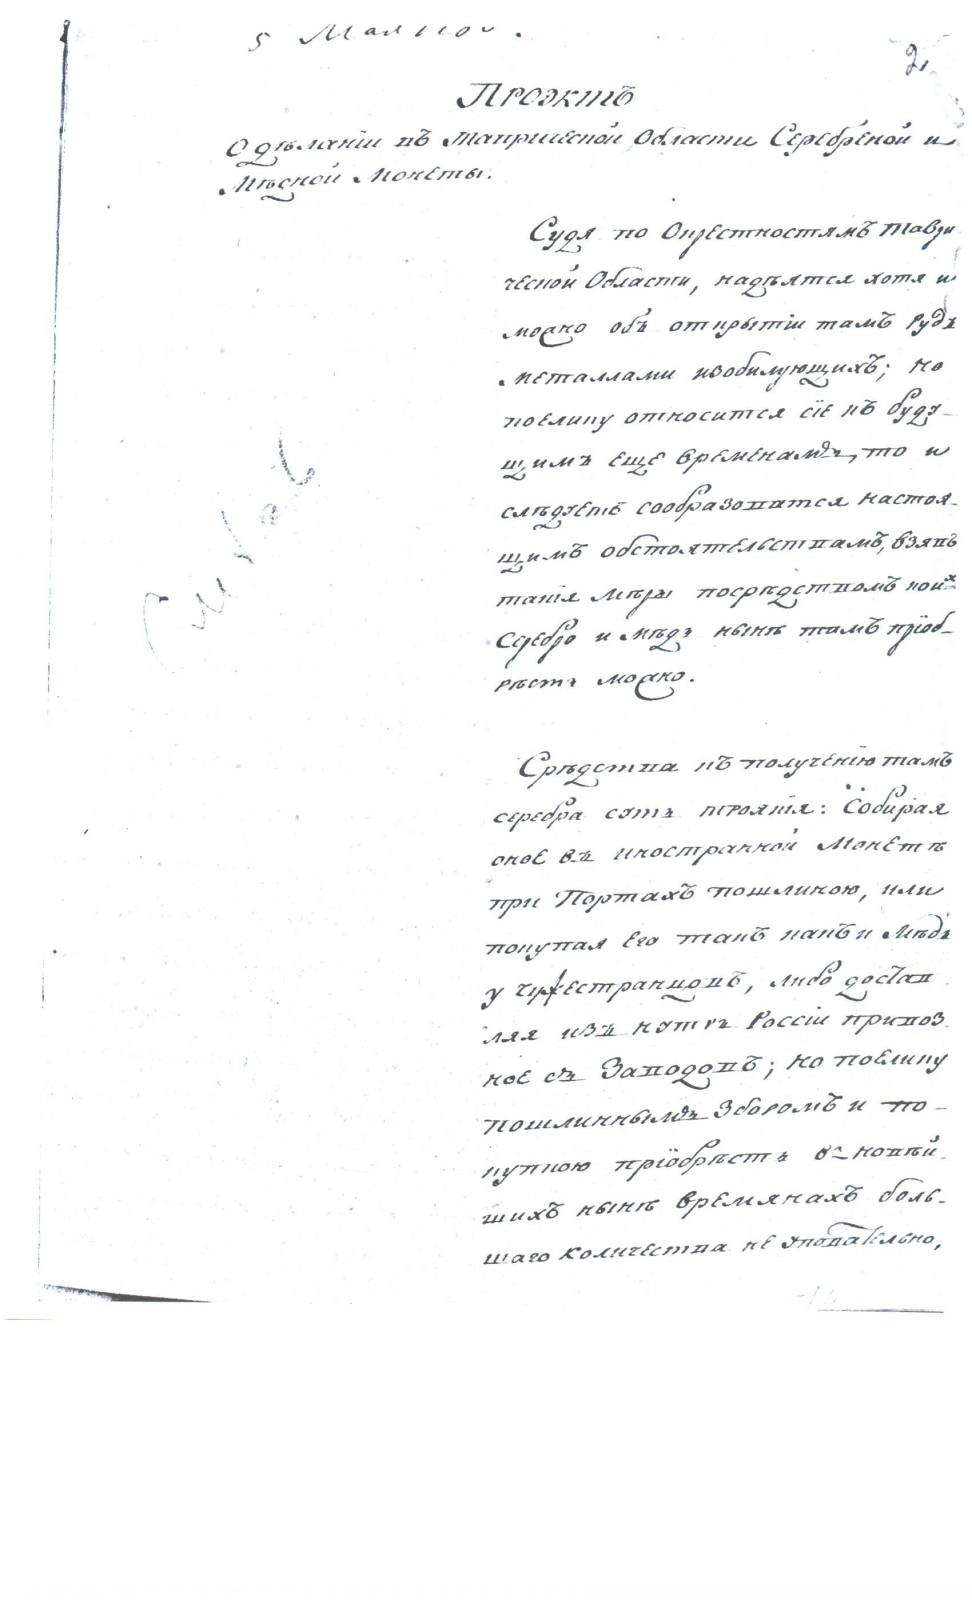 2
Проэктъ
О дѣланiи въ Таврической Области Серебреной и
Мѣдной Монеты.
Судя по Окрестностямъ Таври
ческой Области, надѣятся хотя и
можно объ открытiи тамъ рудъ
металлами изобилующихъ; но
поелику относится сiе къ буду-
щимъ еще временамъ, то и
слѣдуетъ сообразоватся настоя-
щимъ обстоятельствамъ, взявъ
такiя мѣры посредствомъ коихъ
Серебро и мѣдь нынѣ тамъ прiоб-
рѣсть можно.
Срѣдства къ полученiю тамъ
серебра суть троякiя: Собирая
оное въ иностранной Монетѣ
при Портахъ пошлиною, или
покупая Его такъ какъ и Мѣдь
у чужестранцовъ, либо достав
ляя изъ нутрь Россiи привоз
ное съ Заводовъ; но поелику
пошлиннымъ Зборомъ и по-
купкою прiобрѣсть въ новѣй-
шихъ нынѣ времянахъ боль-
шаго количества не уповательно,